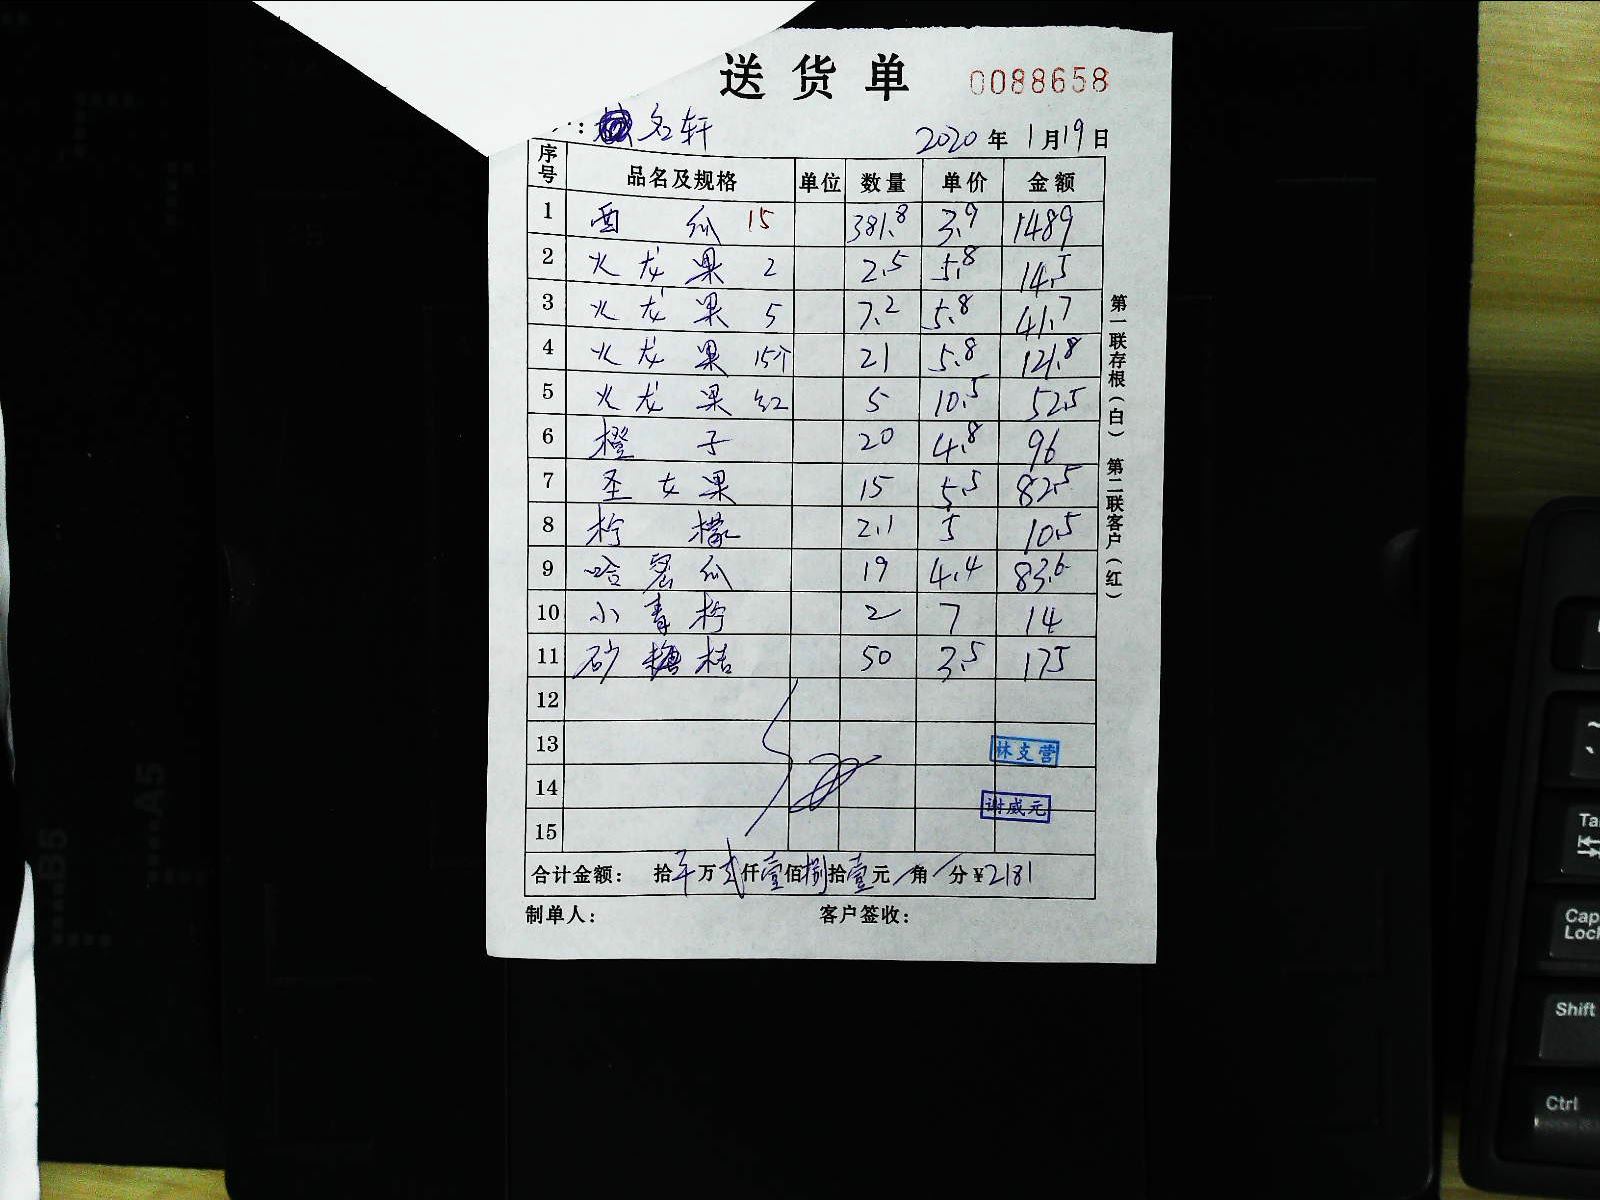 送货单 0088658
: 名轩 2020年1月19日
序号 品名及规格 单位 数量 单价 金额
1 西瓜 15 381.8 3.9 1489
2 火龙果 2 2.5 5.8 14.5
3 火龙果 5 7.2 5.8 41.7
4 火龙果 15个 21 5.8 121.8
5 火龙果 红 5 10.5 52.5
6 橙子 20 4.8 96
7 圣女果 15 5.5 82.5
8 柠檬 2.1 5 10.5
9 哈密瓜 19 4.4 83.6
10 小青柠 2 7 14
11 砂糖桔 50 3.5 175
12
13 林支营
14 谢威元
15
合计金额: 拾 万 弍仟壹佰捌拾壹元 角 分 ¥2181
制单人: 客户签收:
第一联存根(白) 第二联客户(红)
B5
A5
Tab
Caps Lock
Shift
Ctrl